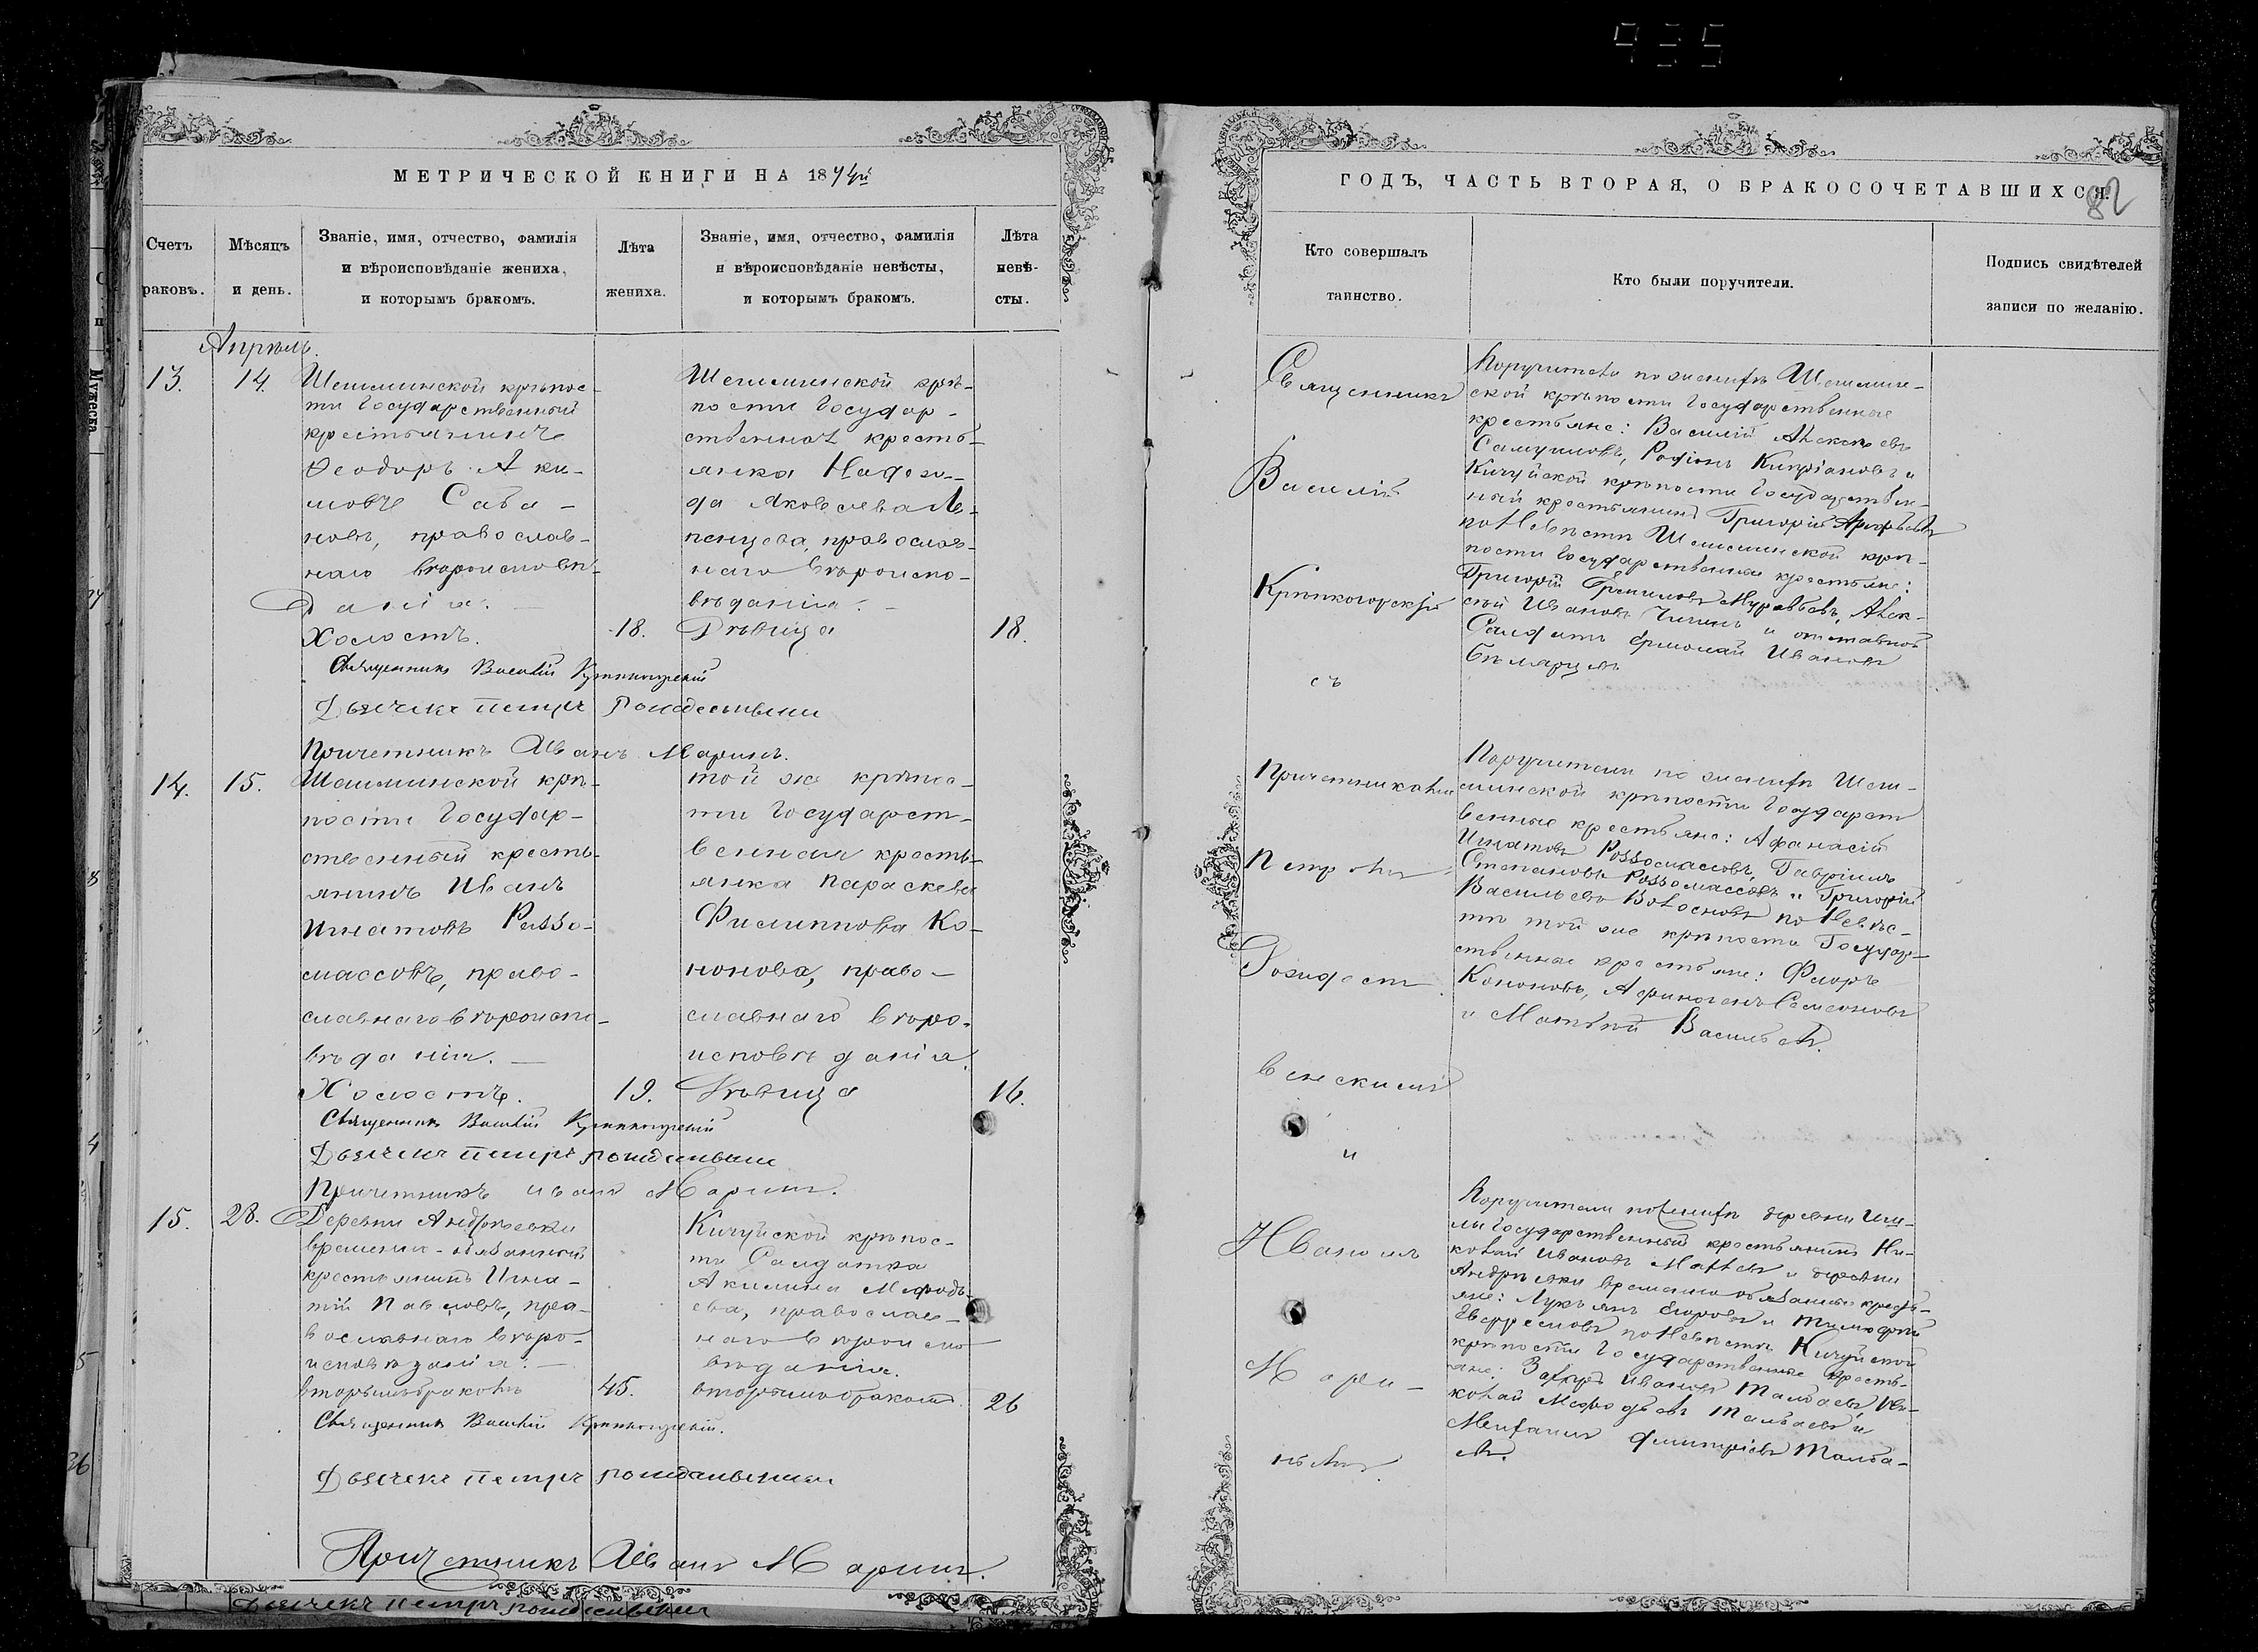 МЕТРИЧЕСКОЙ КНИГИ НА 1874й
Счетъ
раковъ.
Мѣсяцъ
и день.
Званіе, имя, отчество, фамилія
и вѣроисповѣданіе жениха,
и которымъ бракомъ.
Лѣта
жениха.
Званіе, имя, отчество, фамилія
и вѣроисповѣданіе невѣсты,
и которымъ бракомъ.
Лѣта
невѣ-
сты.
Апрѣль.
13.
14.
Шешминской крѣпос-
ти Государственный
крестьянинъ
Ѳеодоръ Аки-
мовъ Сава-
новъ, православ-
наго вѣроисповѣ-
данія.
Холостъ.
18.
Шешминской крѣ-
пости Государ-
ственная кресть-
янка Надеж-
да Яковлева Ле-
пенцева, православ-
наго вѣроиспо-
вѣданія.
Дѣвица
18.
Священникъ Василій Крѣпкогорскій
Дьячекъ Петръ Рождественскій
Причетникъ Иванъ Маринъ.
14.
15.
Шешминской крѣ-
пости Государ-
ственный кресть-
янинъ Иванъ
Игнатовъ Россо-
массовъ, право-
славнаго вѣроиспо-
вѣданія.
Холостъ.
19.
той же крѣпос-
ти Государст-
венная кресть-
янка Параскева
Филиппова Ко-
нонова, право-
славнаго вѣро-
исповѣданія.
Дѣвица
16.
Священникъ Василій Крѣпкогорскій
Дьячекъ Петръ Рождественскій
Причетникъ Иванъ Маринъ.
15.
28.
Деревни Андреевки
временно-обязанный
крестьянинъ Игна-
тій Павловъ, пра-
вославнаго вѣро-
исповѣданія.
вторымъ бракомъ
45.
Кичуйской крѣпос-
ти Солдатка
Акилина Мефодь-
ева, православ-
наго вѣроиспо-
вѣданія.
вторымъ бракомъ.
26
Священникъ Василій Крѣпкогорскій.
Дьячекъ Петръ Рождественскій
Причетникъ Иванъ Маринъ.
Дьячекъ Петръ Рождественскій
ГОДЪ, ЧАСТЬ ВТОРАЯ, О БРАКОСОЧЕТАВШИХСЯ.
82
Кто совершалъ
таинство.
Кто были поручители.
Подпись свидѣтелей
записи по желанію.
Священникъ
Василій
Крѣпкогорскій
съ
Причетниками
Петромъ
Рождест
венскимъ
и
Иваномъ
Мари-
нымъ.
Поручители по женихѣ Шешмин-
ской крѣпости Государственные
крестьяне: Василій Алексѣевъ
Самуиловъ, Родіонъ Кипріановъ и
Кичуйской крѣпости Государствен-
ный крестьянинъ Григорій
по Невѣстѣ Шешминской крѣ-
пости Государственные крестьяне:
Григорій Муравьевъ, Алек-
сѣй Ивановъ и отставной
Солдатъ Ермолай Ивановъ
Поручители по женихѣ Шеш-
минской крѣпости Государст
венные крестьяне: Афанасій
Игнатовъ Россомассовъ, Гавріилъ
Степановъ Россомассовъ и Григорій
Васильевъ Волосновъ по Невѣс-
тѣ той же крѣпости Государ-
ственные крестьяне: Флоръ
Кононовъ, Афиногенъ Семеновъ
и Матвѣй Васильевъ.
Поручители по женихѣ деревни Иш-
ли Государственный крестьянинъ Ни-
колай Ивановъ и деревни
Андреевки временно обязанные кресть-
яне: Лукьянъ Егоровъ и Тимофей
Ефремовъ по Невѣстѣ Кичуйской
крѣпости Государственные кресть-
яне: Захаръ Ивановъ Талдаевъ, Ни-
колай Мефодьевъ Талдаевъ и
Дмитріевъ Талда-
евъ.